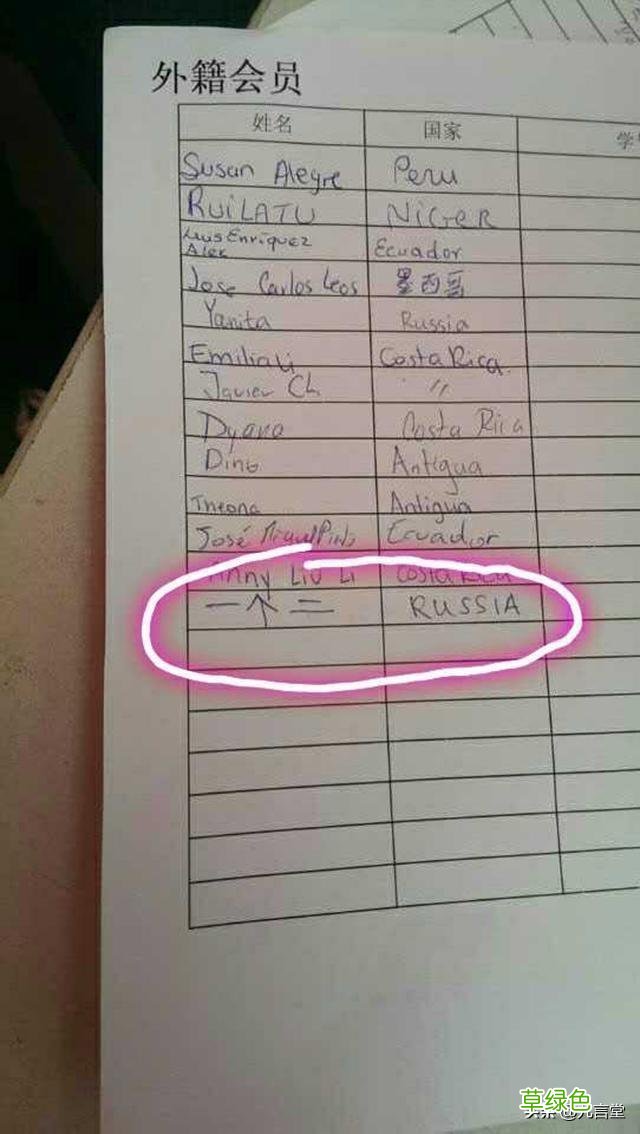 外籍会员
姓名 国家 学
Susan Alegre Peru
RUiLATU NiGER
Luis Enriquez Ecuador
Alex
Jose Carlos Leos 墨西哥
Yanita Russia
Emiliali Costa Rica.
Javier Ch "
Dyana Costa Rica
Dino Antigua
Theona Antigua
José Miguel Ecuador
Anny LiU Li Costa Rica
一个二 RUSSIA
草绿色
头条 @九言堂